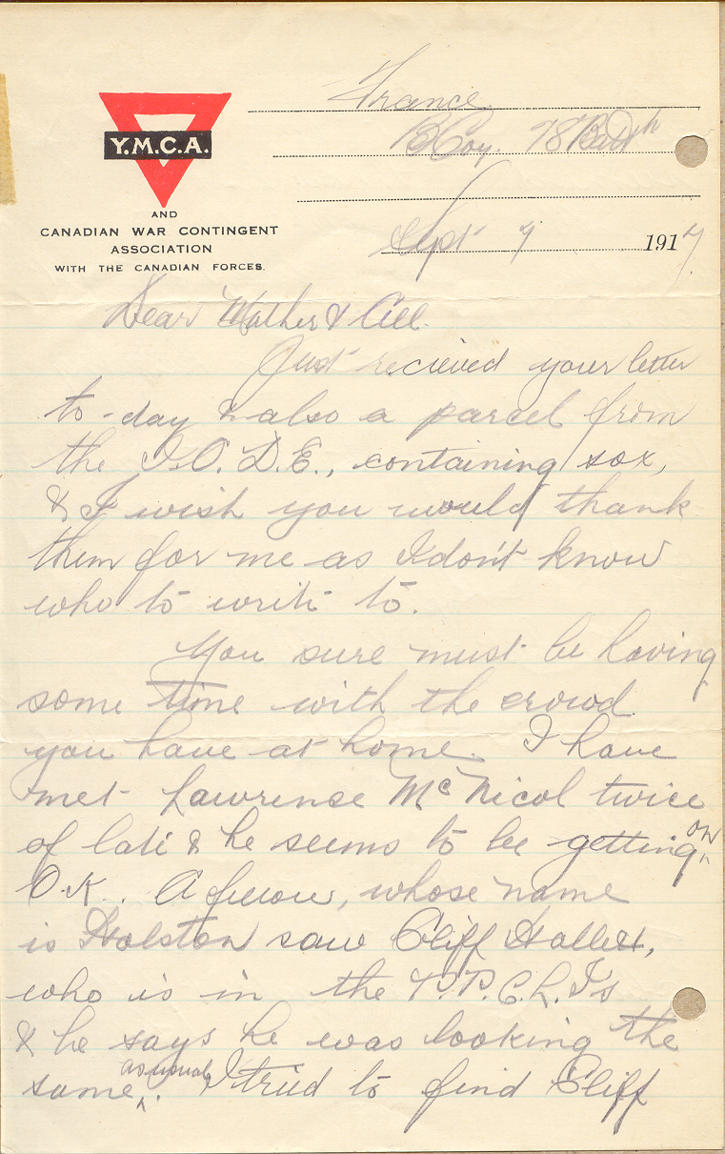 Y.M.C.A.
AND
CANADIAN WAR CONTINGENT
ASSOCIATION
WITH THE CANADIAN FORCES.
France
B Coy. 78 Battn
Sept 7 1917
Dear Mother & All.
Just recieved your letter
to-day & also a parcel from
the I.O.D.E., containing sox,
& I wish you would thank
them for me as I don't know
who to write to.
You sure must be having
some time with the crowd
you have at home. I have
met Lawrense McNicol twice
of late & he seems to be getting on
O.K. A fellow, whose name
is Holston saw Cliff Hallett,
who is in the P.P.C.L.I's
& he says he was looking the
same as usual. I tried to find Cliff